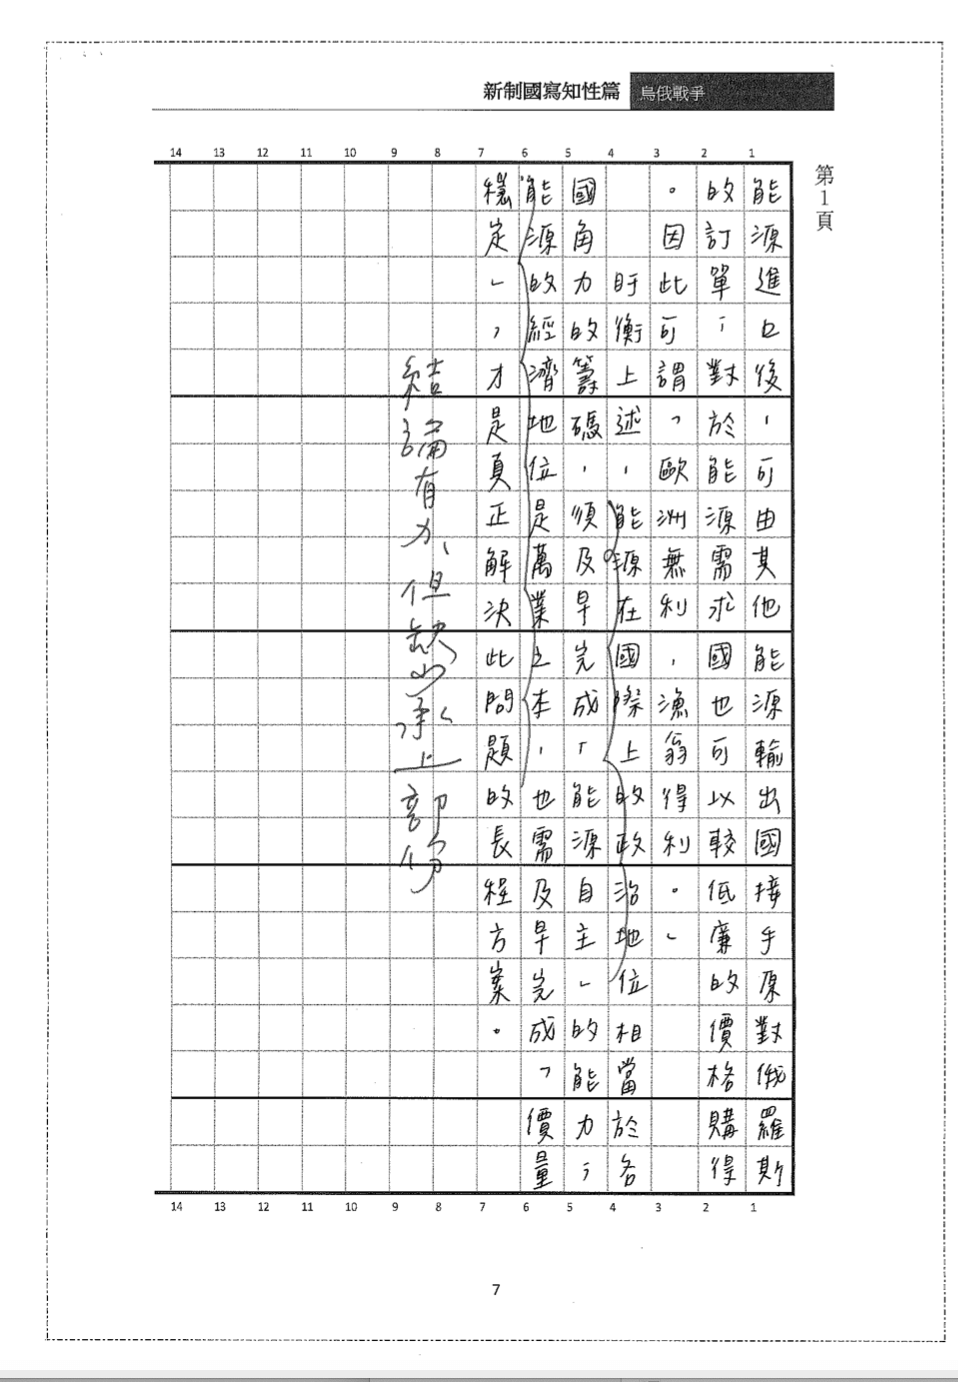 新制國寫知性篇 烏俄戰爭
第1頁
14 13 12 11 10 9 8 7 6 5 4 3 2 1
能源進口後,可由其他能源輸出國接手原對俄羅斯
的訂單;對於能源需求國也可以較低廉的價格購得
。因此可謂「歐洲無利,漁翁得利。」
盱衡上述,能源在國際上的政治地位相當於各
國角力的籌碼,須及早完成「能源自主」的能力;
能源的經濟地位是萬業之本,也需及早完成「價量
穩定」,才是真正解決此問題的長程方案。
結論有力、但缺少「承上」部份
14 13 12 11 10 9 8 7 6 5 4 3 2 1
7